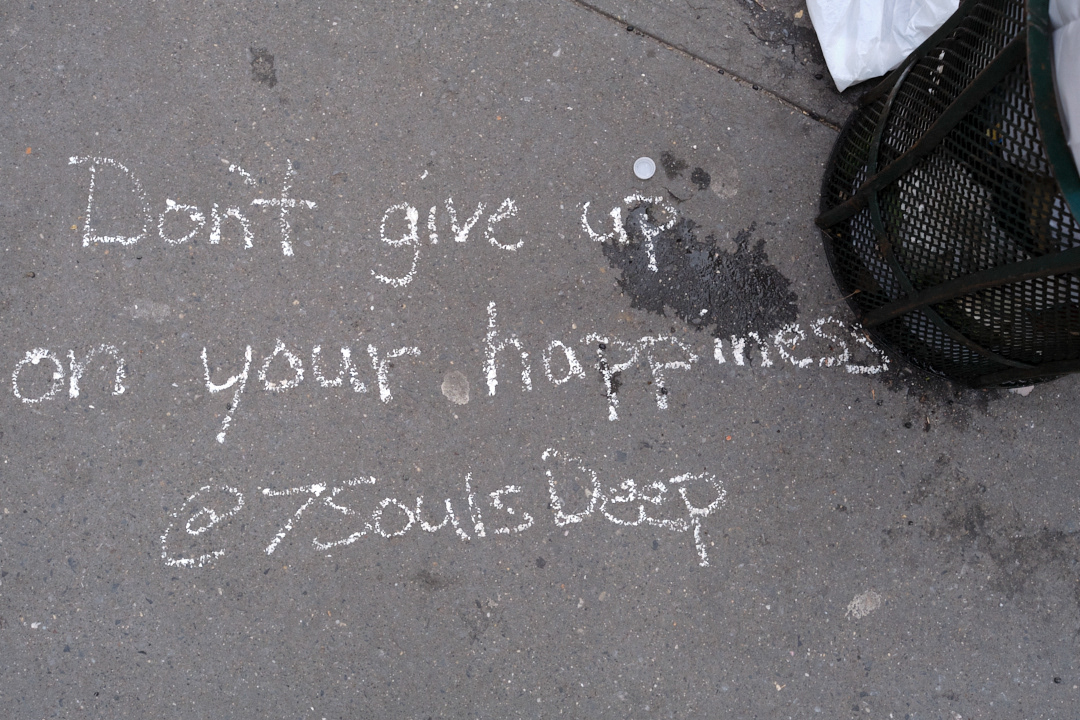 Don't give up
on your happiness
@7SoulsDeep